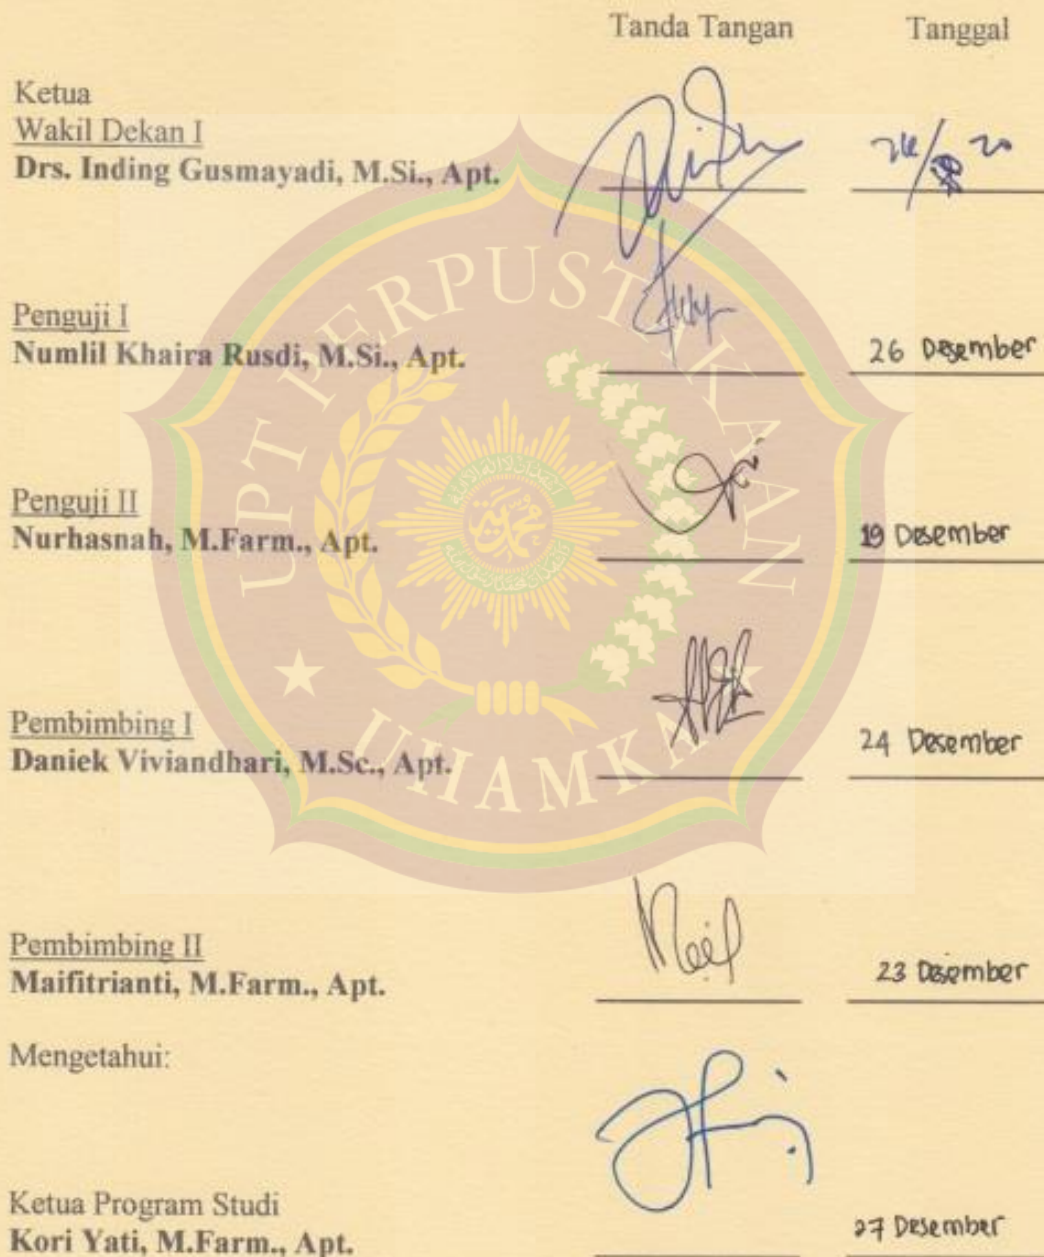 Tanda Tangan Tanggal
Ketua
Wakil Dekan I
Drs. Inding Gusmayadi, M.Si., Apt.
Penguji I
Numlil Khaira Rusdi, M.Si., Apt. 26 Desember
Penguji II
Nurhasnah, M.Farm., Apt. 19 Desember
Pembimbing I
Daniek Viviandhari, M.Sc., Apt. 24 Desember
Pembimbing II
Maifitrianti, M.Farm., Apt. 23 Desember
Mengetahui:
Ketua Program Studi
Kori Yati, M.Farm., Apt. 27 Desember
UPT PERPUSTAKAAN
UHAMKA